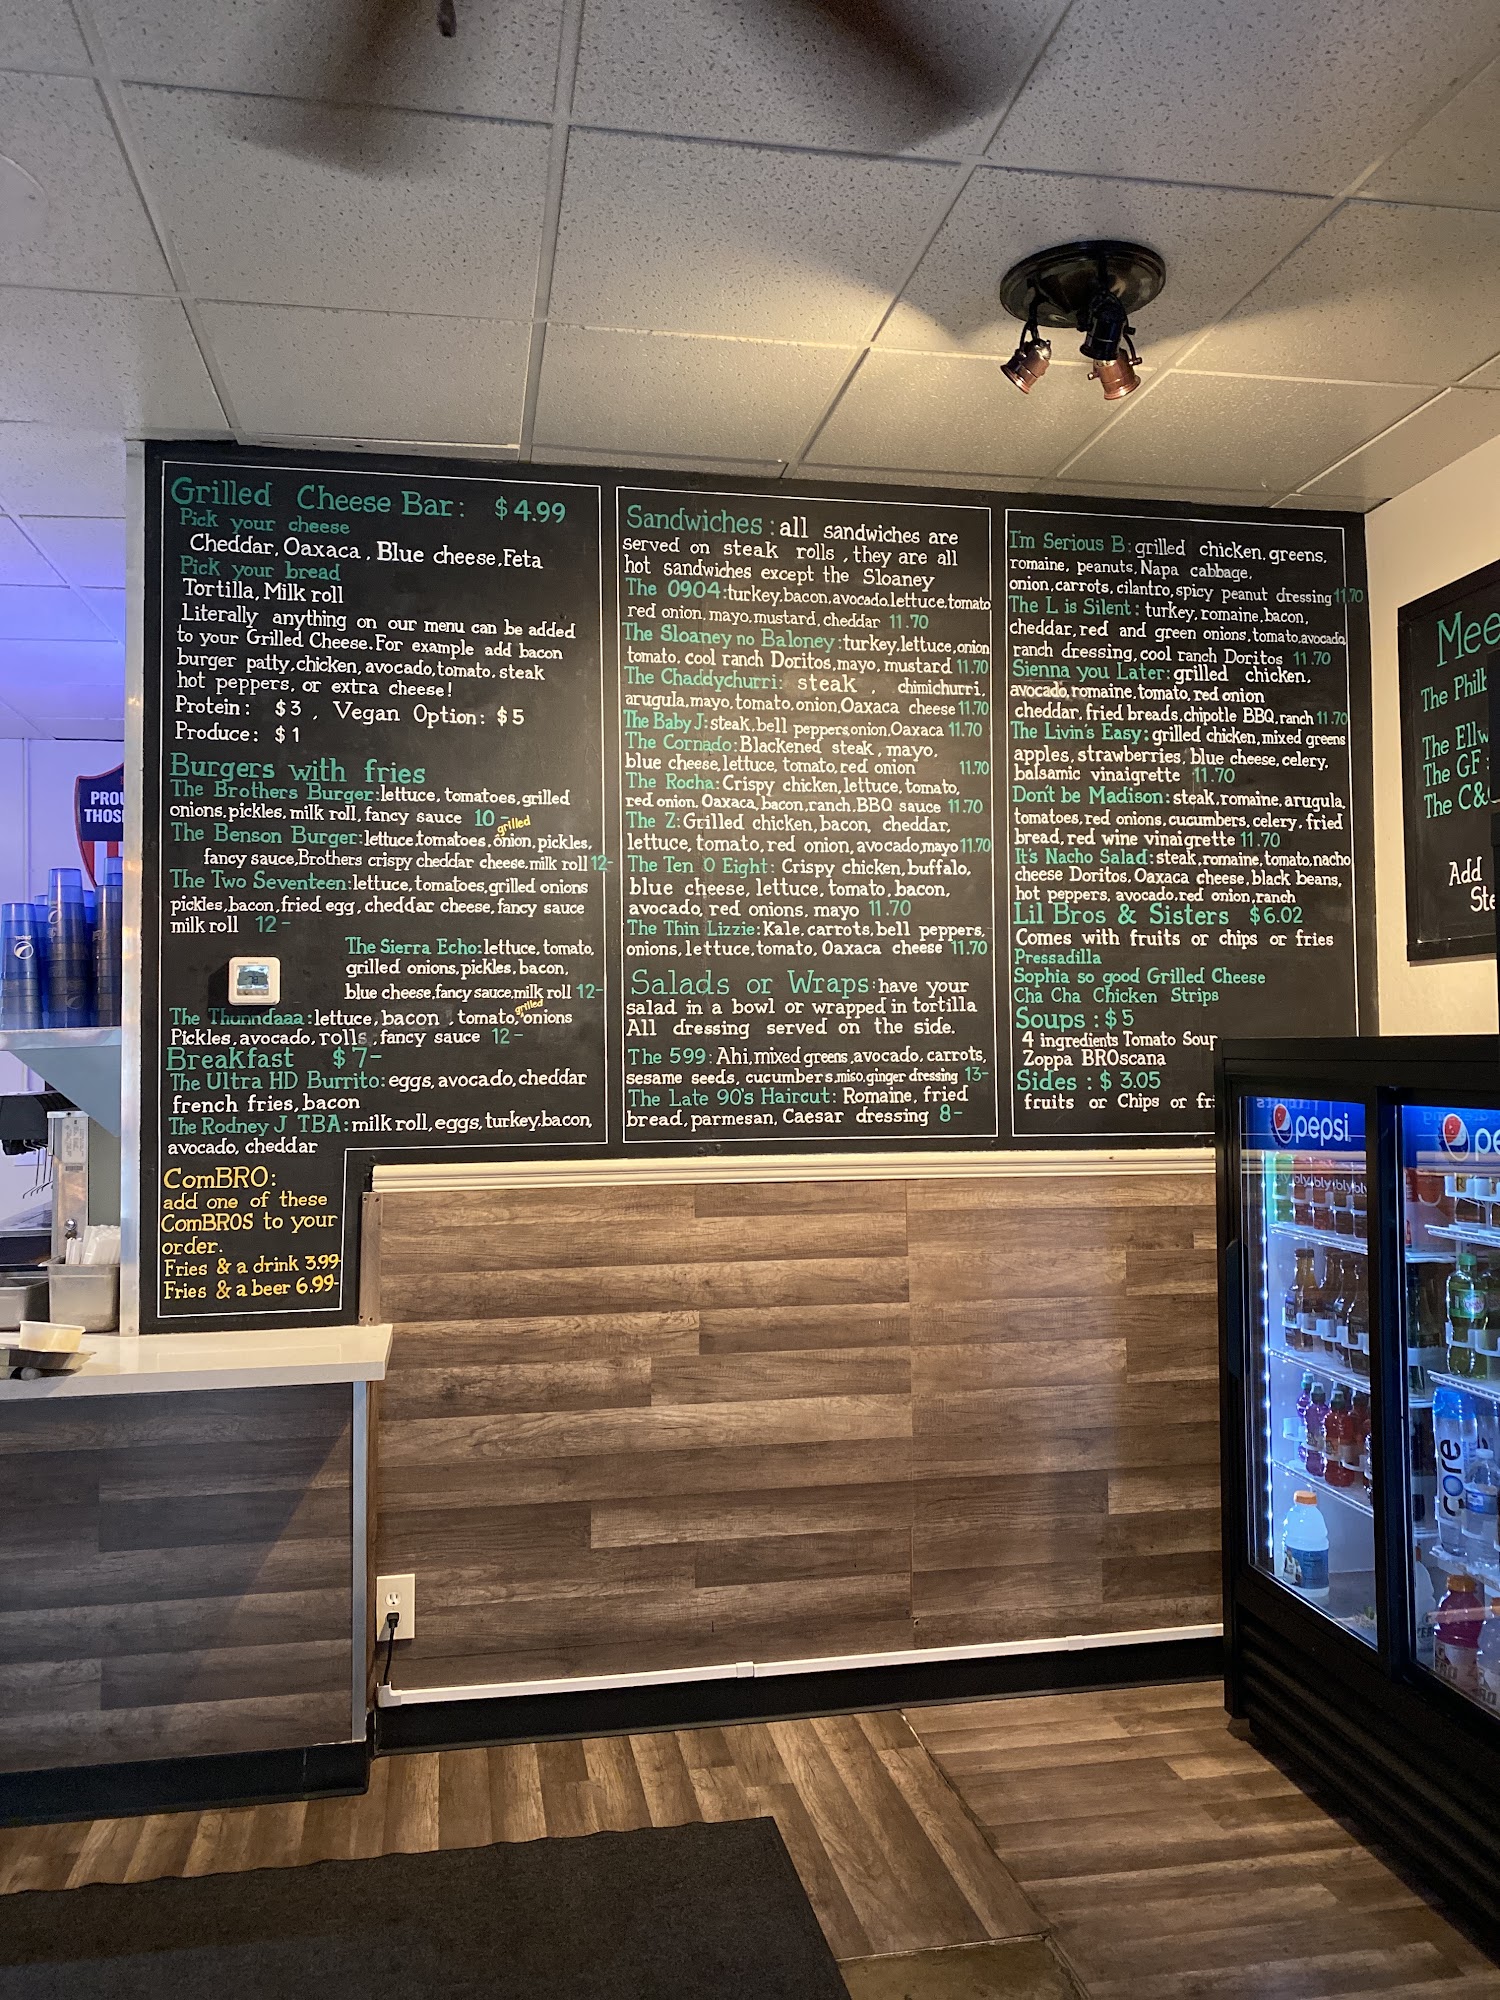 Grilled Cheese Bar: $4.99
Pick your cheese
Cheddar, Oaxaca, Blue cheese, Feta
Pick your bread
Tortilla, Milk roll
Literally anything on our menu can be added
to your Grilled Cheese. For example add bacon
burger patty, chicken, avocado, tomato, steak
hot peppers, or extra cheese!
Protein: $3, Vegan Option: $5
Produce: $1
Burgers with fries
The Brothers Burger: lettuce, tomatoes, grilled
onions, pickles, milk roll, fancy sauce 10-
grilled
The Benson Burger: lettuce, tomatoes, onion, pickles,
fancy sauce, Brothers crispy cheddar cheese, milk roll 12-
The Two Seventeen: lettuce, tomatoes, grilled onions
pickles, bacon, fried egg, cheddar cheese, fancy sauce
milk roll 12-
The Sierra Echo: lettuce, tomato,
grilled onions, pickles, bacon,
blue cheese, fancy sauce, milk roll 12-
grilled
The Thunndaaa: lettuce, bacon, tomato, onions
Pickles, avocado, rolls, fancy sauce 12-
Breakfast $7-
The Ultra HD Burrito: eggs, avocado, cheddar
french fries, bacon
The Rodney J TBA: milk roll, eggs, turkey, bacon,
avocado, cheddar
ComBRO:
add one of these
ComBROS to your
order.
Fries & a drink 3.99
Fries & a beer 6.99-
Sandwiches: all sandwiches are
served on steak rolls, they are all
hot sandwiches except the Sloaney
The 0904: turkey, bacon, avocado, lettuce, tomato
red onion, mayo, mustard, cheddar 11.70
The Sloaney no Baloney: turkey, lettuce, onion
tomato, cool ranch Doritos, mayo, mustard 11.70
The Chaddychurri: steak, chimichurri,
arugula, mayo, tomato, onion, Oaxaca cheese 11.70
The Baby J: steak, bell peppers, onion, Oaxaca 11.70
The Cornado: Blackened steak, mayo,
blue cheese, lettuce, tomato, red onion 11.70
The Rocha: Crispy chicken, lettuce, tomato,
red onion, Oaxaca, bacon, ranch, BBQ sauce 11.70
The Z: Grilled chicken, bacon, cheddar,
lettuce, tomato, red onion, avocado, mayo 11.70
The Ten O Eight: Crispy chicken, buffalo,
blue cheese, lettuce, tomato, bacon,
avocado, red onions, mayo 11.70
The Thin Lizzie: Kale, carrots, bell peppers,
onions, lettuce, tomato, Oaxaca cheese 11.70
Salads or Wraps: have your
salad in a bowl or wrapped in tortilla
All dressing served on the side.
The 599: Ahi, mixed greens, avocado, carrots,
sesame seeds, cucumbers, miso, ginger dressing 13-
The Late 90's Haircut: Romaine, fried
bread, parmesan, Caesar dressing 8-
I'm Serious B: grilled chicken, greens,
romaine, peanuts, Napa cabbage,
onion, carrots, cilantro, spicy peanut dressing 11.70
The L is Silent: turkey, romaine, bacon,
cheddar, red and green onions, tomato, avocado,
ranch dressing, cool ranch Doritos 11.70
Sienna you Later: grilled chicken,
avocado, romaine, tomato, red onion
cheddar, fried breads, chipotle BBQ, ranch 11.70
The Livin's Easy: grilled chicken, mixed greens
apples, strawberries, blue cheese, celery,
balsamic vinaigrette 11.70
Don't be Madison: steak, romaine, arugula,
tomatoes, red onions, cucumbers, celery, fried
bread, red wine vinaigrette 11.70
It's Nacho Salad: steak, romaine, tomato, nacho
cheese Doritos, Oaxaca cheese, black beans,
hot peppers, avocado, red onion, ranch
Lil Bros & Sisters $6.02
Comes with fruits or chips or fries
Pressadilla
Sophia so good Grilled Cheese
Cha Cha Chicken Strips
Soups: $5
4 ingredients Tomato Soup
Zoppa BROscana
Sides: $3.05
fruits or Chips or fri
Mee
The Phill
The Ellw
The GF:
The C&
Add
Ste
PROU
THOS
pepsi
pe
core